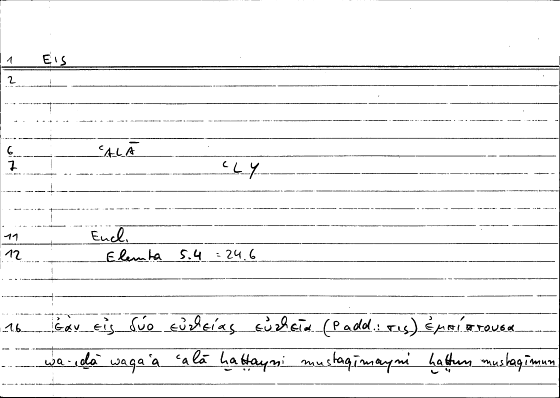 1 Eis
2
6 ʿALĀ
7 ʿLY
11 Eucl.
12 Elementa 5.4 = 24.6
16 ἐὰν εἰς δύο εὐθείας εὐθεῖα (P add.: τις) ἐμπίπτουσα
wa-iḏā waqaʿa ʿalā ḫaṭṭayni mustaqīmayni ḫaṭṭun mustaqīmun